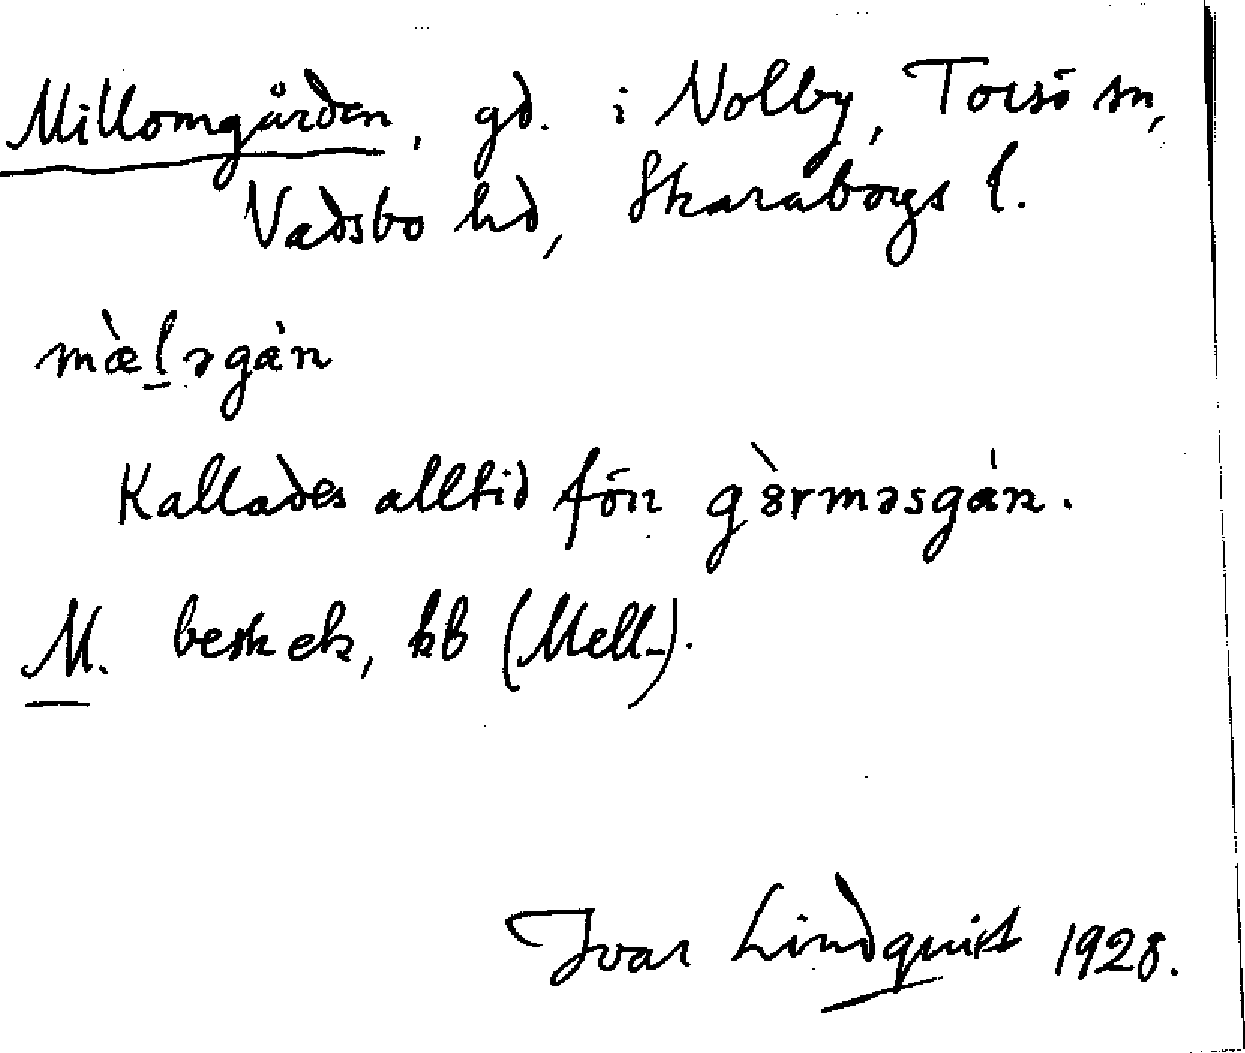 Millomgården, gd. i Nolby, Torsö sn,
Vadsbo hd, Skaraborgs l.
mæ̀ḻəgán
Kallades alltid förr gȍrməsgán.
M. besk ek, kb (Mell-).
Ivar Lindquist 1928.